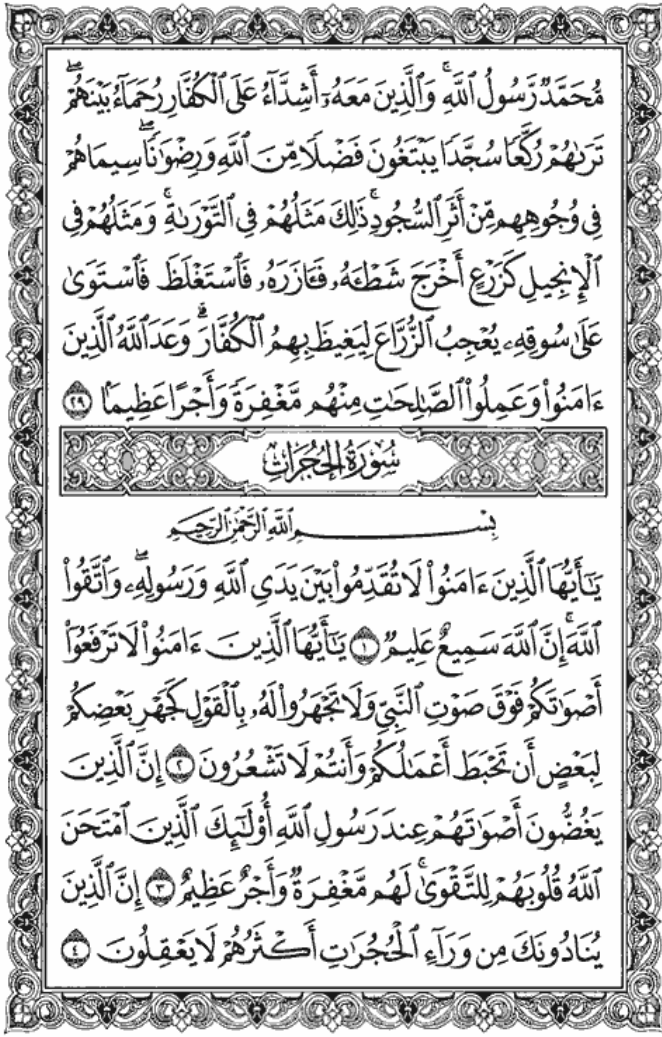 مُّحَمَّدٌ رَّسُولُ ٱللَّهِ ۚ وَٱلَّذِينَ مَعَهُۥٓ أَشِدَّآءُ عَلَى ٱلْكُفَّارِ رُحَمَآءُ بَيْنَهُمْ ۖ
تَرَىٰهُمْ رُكَّعًا سُجَّدًا يَبْتَغُونَ فَضْلًا مِّنَ ٱللَّهِ وَرِضْوَٰنًا ۖ سِيمَاهُمْ
فِى وُجُوهِهِم مِّنْ أَثَرِ ٱلسُّجُودِ ۚ ذَٰلِكَ مَثَلُهُمْ فِى ٱلتَّوْرَىٰةِ ۚ وَمَثَلُهُمْ فِى
ٱلْإِنجِيلِ كَزَرْعٍ أَخْرَجَ شَطْـَٔهُۥ فَـَٔازَرَهُۥ فَٱسْتَغْلَظَ فَٱسْتَوَىٰ
عَلَىٰ سُوقِهِۦ يُعْجِبُ ٱلزُّرَّاعَ لِيَغِيظَ بِهِمُ ٱلْكُفَّارَ ۗ وَعَدَ ٱللَّهُ ٱلَّذِينَ
ءَامَنُوا۟ وَعَمِلُوا۟ ٱلصَّـٰلِحَـٰتِ مِنْهُم مَّغْفِرَةً وَأَجْرًا عَظِيمًۢا ٢٩
سُورَةُ الحُجُرَاتِ
بِسْمِ ٱللَّهِ ٱلرَّحْمَـٰنِ ٱلرَّحِيمِ
يَـٰٓأَيُّهَا ٱلَّذِينَ ءَامَنُوا۟ لَا تُقَدِّمُوا۟ بَيْنَ يَدَىِ ٱللَّهِ وَرَسُولِهِۦ ۖ وَٱتَّقُوا۟
ٱللَّهَ ۚ إِنَّ ٱللَّهَ سَمِيعٌ عَلِيمٌ ١ يَـٰٓأَيُّهَا ٱلَّذِينَ ءَامَنُوا۟ لَا تَرْفَعُوٓا۟
أَصْوَٰتَكُمْ فَوْقَ صَوْتِ ٱلنَّبِىِّ وَلَا تَجْهَرُوا۟ لَهُۥ بِٱلْقَوْلِ كَجَهْرِ بَعْضِكُمْ
لِبَعْضٍ أَن تَحْبَطَ أَعْمَـٰلُكُمْ وَأَنتُمْ لَا تَشْعُرُونَ ٢ إِنَّ ٱلَّذِينَ
يَغُضُّونَ أَصْوَٰتَهُمْ عِندَ رَسُولِ ٱللَّهِ أُو۟لَـٰٓئِكَ ٱلَّذِينَ ٱمْتَحَنَ
ٱللَّهُ قُلُوبَهُمْ لِلتَّقْوَىٰ ۚ لَهُم مَّغْفِرَةٌ وَأَجْرٌ عَظِيمٌ ٣ إِنَّ ٱلَّذِينَ
يُنَادُونَكَ مِن وَرَآءِ ٱلْحُجُرَٰتِ أَكْثَرُهُمْ لَا يَعْقِلُونَ ٤